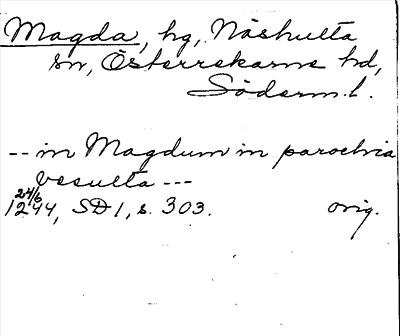 Magda, hg, Näshulta
sn, Österrekarne hd,
Söderm. l.
-- in Magdum in parochia
Vesulta ---
24/6
1244, SD 1, s. 303. orig.